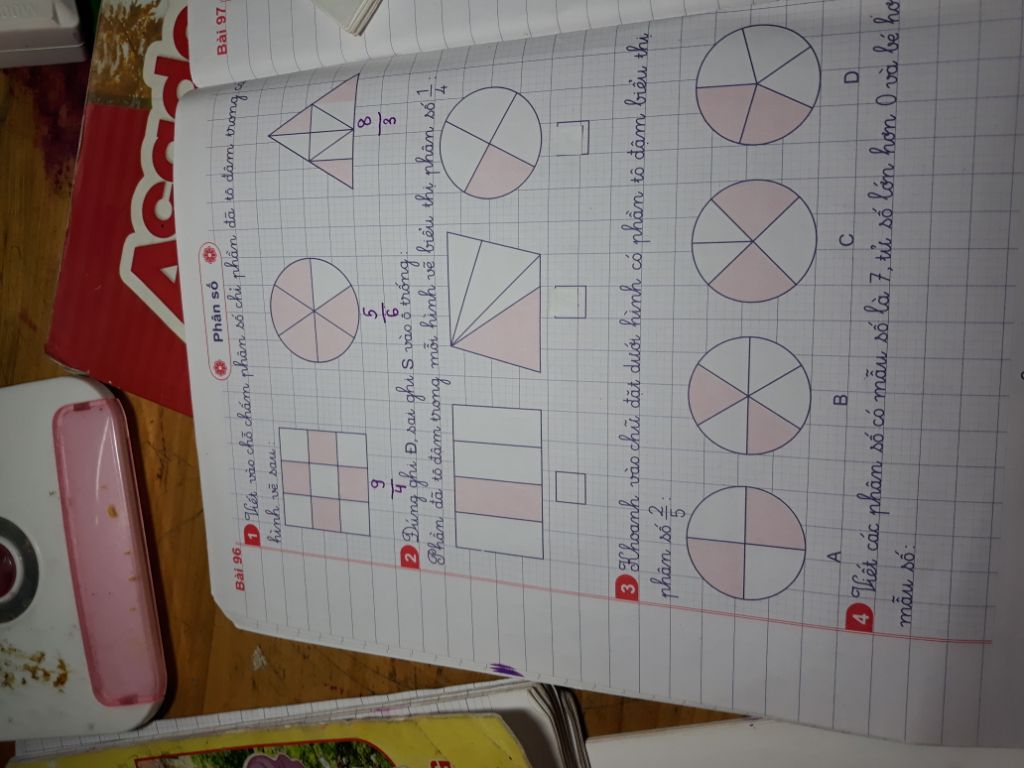 Bài 96
Phân số
1 Viết vào chỗ chấm phân số chỉ phần đã tô đậm trong
hình vẽ sau:
9/4
5/6
8/3
2 Đúng ghi Đ, sai ghi S vào ô trống:
Phần đã tô đậm trong mỗi hình vẽ biểu thị phân số 1/4:
3 Khoanh vào chữ đặt dưới hình có phần tô đậm biểu thị
phân số 2/5:
A B C D
4 Viết các phân số có mẫu số là 7, tử số lớn hơn 0 và bé hơ
mẫu số:
Bài 97
Acade